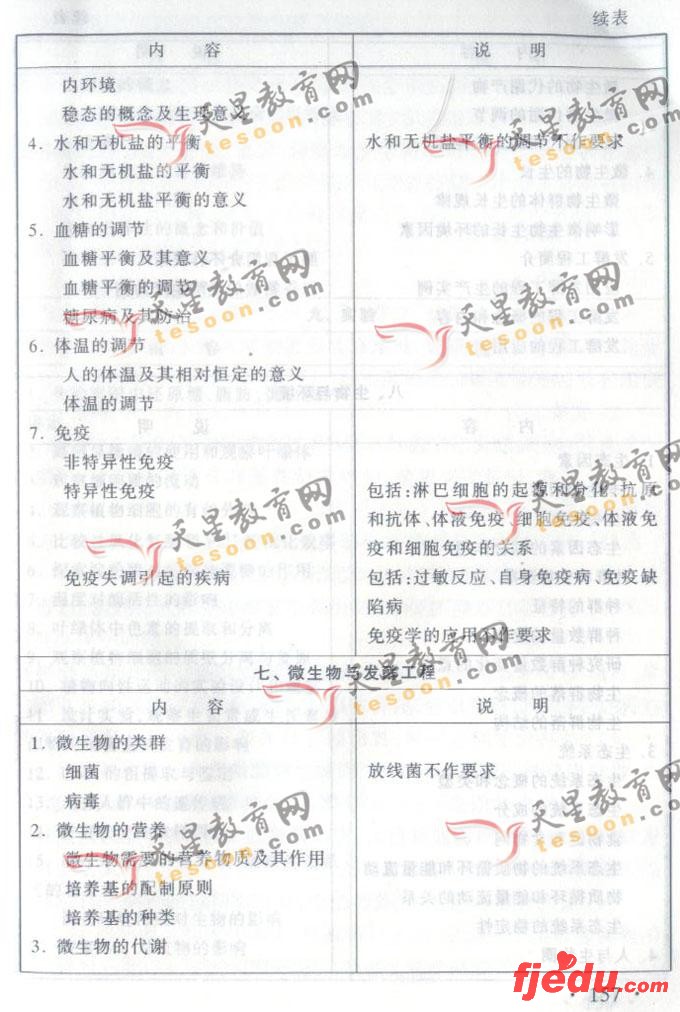 续表
内 容
说 明
内环境
稳态的概念及生理意义
4. 水和无机盐的平衡
水和无机盐平衡的调节不作要求
水和无机盐的平衡
水和无机盐平衡的意义
5. 血糖的调节
血糖平衡及其意义
血糖平衡的调节
糖尿病及其防治
6. 体温的调节
人的体温及其相对恒定的意义
体温的调节
7. 免疫
非特异性免疫
特异性免疫
包括:淋巴细胞的起源和分化、抗原
和抗体、体液免疫、细胞免疫、体液免
疫和细胞免疫的关系
免疫失调引起的疾病
包括:过敏反应、自身免疫病、免疫缺
陷病
免疫学的应用不作要求
七、微生物与发酵工程
内 容
说 明
1. 微生物的类群
细菌
放线菌不作要求
病毒
2. 微生物的营养
微生物需要的营养物质及其作用
培养基的配制原则
培养基的种类
3. 微生物的代谢
天星教育网
tesoon.com
天星教育网
tesoon.com
天星教育网
tesoon.com
天星教育网
tesoon.com
天星教育网
tesoon.com
天星教育网
tesoon.com
天星教育网
tesoon.com
天星教育网
tesoon.com
fjedu.com
· 157 ·